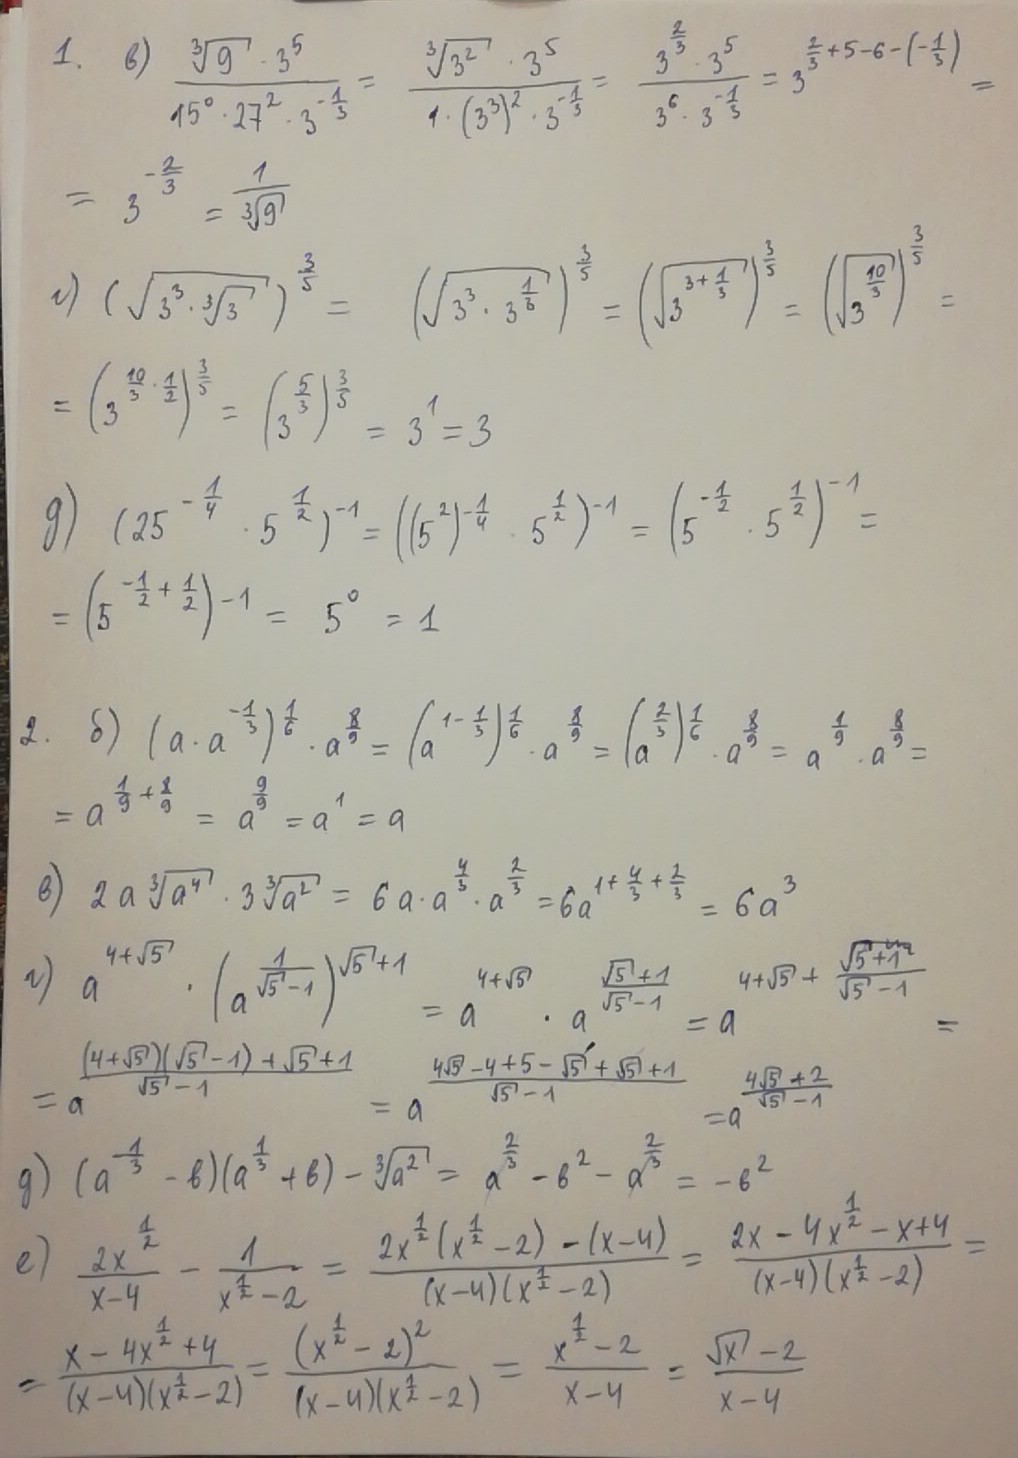 1. в) \frac{\sqrt[3]{9} · 3^5}{15^0 · 27^2 · 3^{-\frac{1}{3}}} = \frac{\sqrt[3]{3^2} · 3^5}{1 · (3^3)^2 · 3^{-\frac{1}{3}}} = \frac{3^{\frac{2}{3}} · 3^5}{3^6 · 3^{-\frac{1}{3}}} = 3^{\frac{2}{3}+5-6-(-\frac{1}{3})} =
= 3^{-\frac{2}{3}} = \frac{1}{\sqrt[3]{9}}
г) (\sqrt{3^3 · \sqrt[3]{3}})^{\frac{3}{5}} = (\sqrt{3^3 · 3^{\frac{1}{3}}})^{\frac{3}{5}} = (\sqrt{3^{3+\frac{1}{3}}})^{\frac{3}{5}} = (\sqrt{3^{\frac{10}{3}}})^{\frac{3}{5}} =
= (3^{\frac{10}{3}·\frac{1}{2}})^{\frac{3}{5}} = (3^{\frac{5}{3}})^{\frac{3}{5}} = 3^1 = 3
д) (25^{-\frac{1}{4}} · 5^{\frac{1}{2}})^{-1} = ((5^2)^{-\frac{1}{4}} · 5^{\frac{1}{2}})^{-1} = (5^{-\frac{1}{2}} · 5^{\frac{1}{2}})^{-1} =
= (5^{-\frac{1}{2}+\frac{1}{2}})^{-1} = 5^0 = 1
2. б) (a · a^{-\frac{1}{3}})^{\frac{1}{6}} · a^{\frac{8}{9}} = (a^{1-\frac{1}{3}})^{\frac{1}{6}} · a^{\frac{8}{9}} = (a^{\frac{2}{3}})^{\frac{1}{6}} · a^{\frac{8}{9}} = a^{\frac{1}{9}} · a^{\frac{8}{9}} =
= a^{\frac{1}{9}+\frac{8}{9}} = a^{\frac{9}{9}} = a^1 = a
в) 2a\sqrt[3]{a^4} · 3\sqrt[3]{a^2} = 6a · a^{\frac{4}{3}} · a^{\frac{2}{3}} = 6a^{1+\frac{4}{3}+\frac{2}{3}} = 6a^3
г) a^{4+\sqrt{5}} · (a^{\frac{1}{\sqrt{5}-1}})^{\sqrt{5}+1} = a^{4+\sqrt{5}} · a^{\frac{\sqrt{5}+1}{\sqrt{5}-1}} = a^{4+\sqrt{5}+\frac{\sqrt{5}+1}{\sqrt{5}-1}} =
= a^{\frac{(4+\sqrt{5})(\sqrt{5}-1)+\sqrt{5}+1}{\sqrt{5}-1}} = a^{\frac{4\sqrt{5}-4+5-\sqrt{5}+\sqrt{5}+1}{\sqrt{5}-1}} = a^{\frac{4\sqrt{5}+2}{\sqrt{5}-1}}
д) (a^{-\frac{1}{3}} - в)(a^{\frac{1}{3}} + в) - \sqrt[3]{a^2} = a^{\frac{2}{3}} - в^2 - a^{\frac{2}{3}} = -в^2
е) \frac{2x^{\frac{1}{2}}}{x-4} - \frac{1}{x^{\frac{1}{2}}-2} = \frac{2x^{\frac{1}{2}}(x^{\frac{1}{2}}-2)-(x-4)}{(x-4)(x^{\frac{1}{2}}-2)} = \frac{2x-4x^{\frac{1}{2}}-x+4}{(x-4)(x^{\frac{1}{2}}-2)} =
= \frac{x-4x^{\frac{1}{2}}+4}{(x-4)(x^{\frac{1}{2}}-2)} = \frac{(x^{\frac{1}{2}}-2)^2}{(x-4)(x^{\frac{1}{2}}-2)} = \frac{x^{\frac{1}{2}}-2}{x-4} = \frac{\sqrt{x}-2}{x-4}